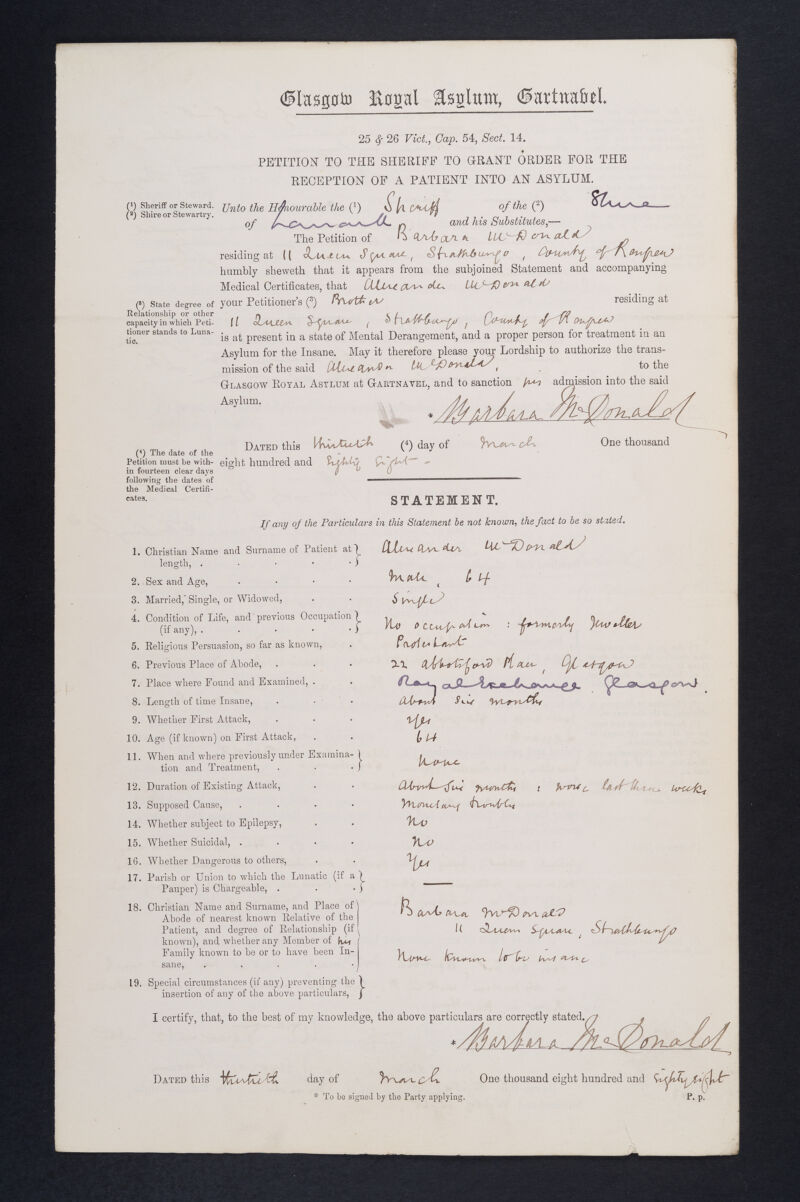 Glasgow Royal Asylum, Gartnabel.
25 & 26 Vict., Cap. 54, Sect. 14.
PETITION TO THE SHERIFF TO GRANT ORDER FOR THE
RECEPTION OF A PATIENT INTO AN ASYLUM.
(¹) Sheriff or Steward.
(²) Shire or Stewartry.
Unto the Honourable the (¹) Sheriff of the (²) Shire
of Lanark and his Substitutes,—
The Petition of Barbara McDonald
residing at 11 Queen Square, Strathbungo, County of Renfrew
humbly sheweth that it appears from the subjoined Statement and accompanying
Medical Certificates, that Alexander McDonald
(³) State degree of
Relationship or other
capacity in which Peti-
tioner stands to Luna-
tic.
your Petitioner's (³) Brother residing at
11 Queen Square, Strathbungo, County of Renfrew
is at present in a state of Mental Derangement, and a proper person for treatment in an
Asylum for the Insane. May it therefore please your Lordship to authorize the trans-
mission of the said Alexander McDonald, to the
GLASGOW ROYAL ASYLUM at GARTNAVEL, and to sanction his admission into the said
Asylum.
* Barbara McDonald
(⁴) The date of the
Petition must be with-
in fourteen clear days
following the dates of
the Medical Certifi-
cates.
DATED this thirtieth (⁴) day of March One thousand
eight hundred and Eighty Eight -
STATEMENT.
If any of the Particulars in this Statement be not known, the fact to be so stated.
1. Christian Name and Surname of Patient at length, . . . . . Alexander McDonald
2. Sex and Age, . . . . Male, 64
3. Married, Single, or Widowed, . . Single
4. Condition of Life, and previous Occupation (if any), . . . . . No occupation : formerly Jeweller
5. Religious Persuasion, so far as known, . Protestant
6. Previous Place of Abode, . . . 22 Abbotsford Place, Glasgow
7. Place where Found and Examined, . . Royal Exchange, Glasgow.
8. Length of time Insane, . . . About six months
9. Whether First Attack, . . . Yes
10. Age (if known) on First Attack, . . 64
11. When and where previously under Examination and Treatment, . . . None
12. Duration of Existing Attack, . . About six months : worse last three weeks
13. Supposed Cause, . . . . Monetary troubles
14. Whether subject to Epilepsy, . . No
15. Whether Suicidal, . . . . No
16. Whether Dangerous to others, . . Yes
17. Parish or Union to which the Lunatic (if a Pauper) is Chargeable, . . . —
18. Christian Name and Surname, and Place of
Abode of nearest known Relative of the
Patient, and degree of Relationship (if
known), and whether any Member of his
Family known to be or to have been In-
sane, . . . . .
Barbara McDonald
11 Queen Square, Strathbungo
None known to be insane
19. Special circumstances (if any) preventing the
insertion of any of the above particulars,
I certify, that, to the best of my knowledge, the above particulars are correctly stated.
* Barbara McDonald
DATED this thirtieth day of March One thousand eight hundred and Eighty eight
* To be signed by the Party applying.
P. p.